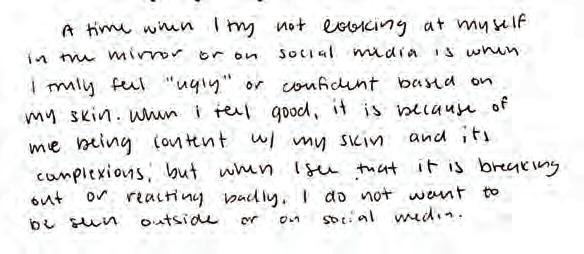 A time when I try not looking at myself
in the mirror or on social media is when
I truly feel "ugly" or confident based on
my skin. When i feel good, it is because of
me being content w/ my skin and its
complexions, but when I see that it is breaking
out or reacting badly, I do not want to
be seen outside or on social media.